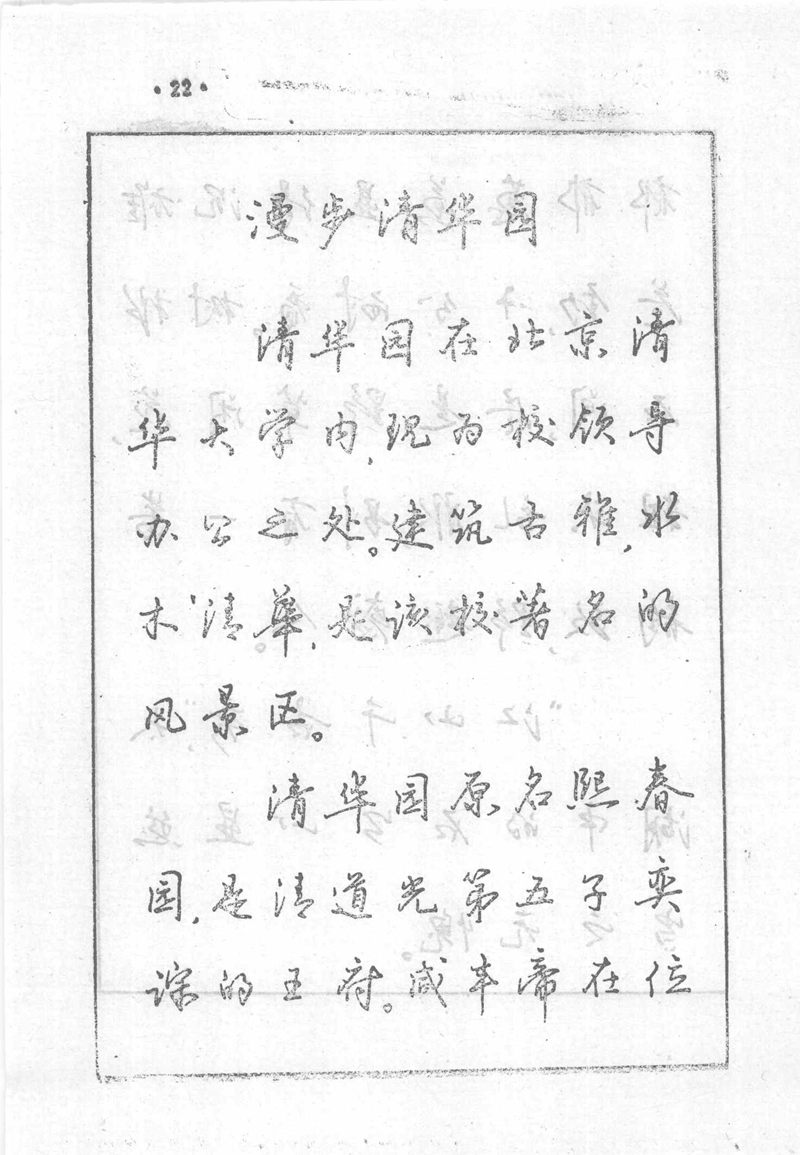 ·22·
漫步清华园
清华园在北京清
华大学内,现为校领导
办公之处。建筑古雅,水
木清华,是该校著名的
风景区。
清华园原名熙春
园,是清道光第五子奕
誴的王府。咸丰帝在位